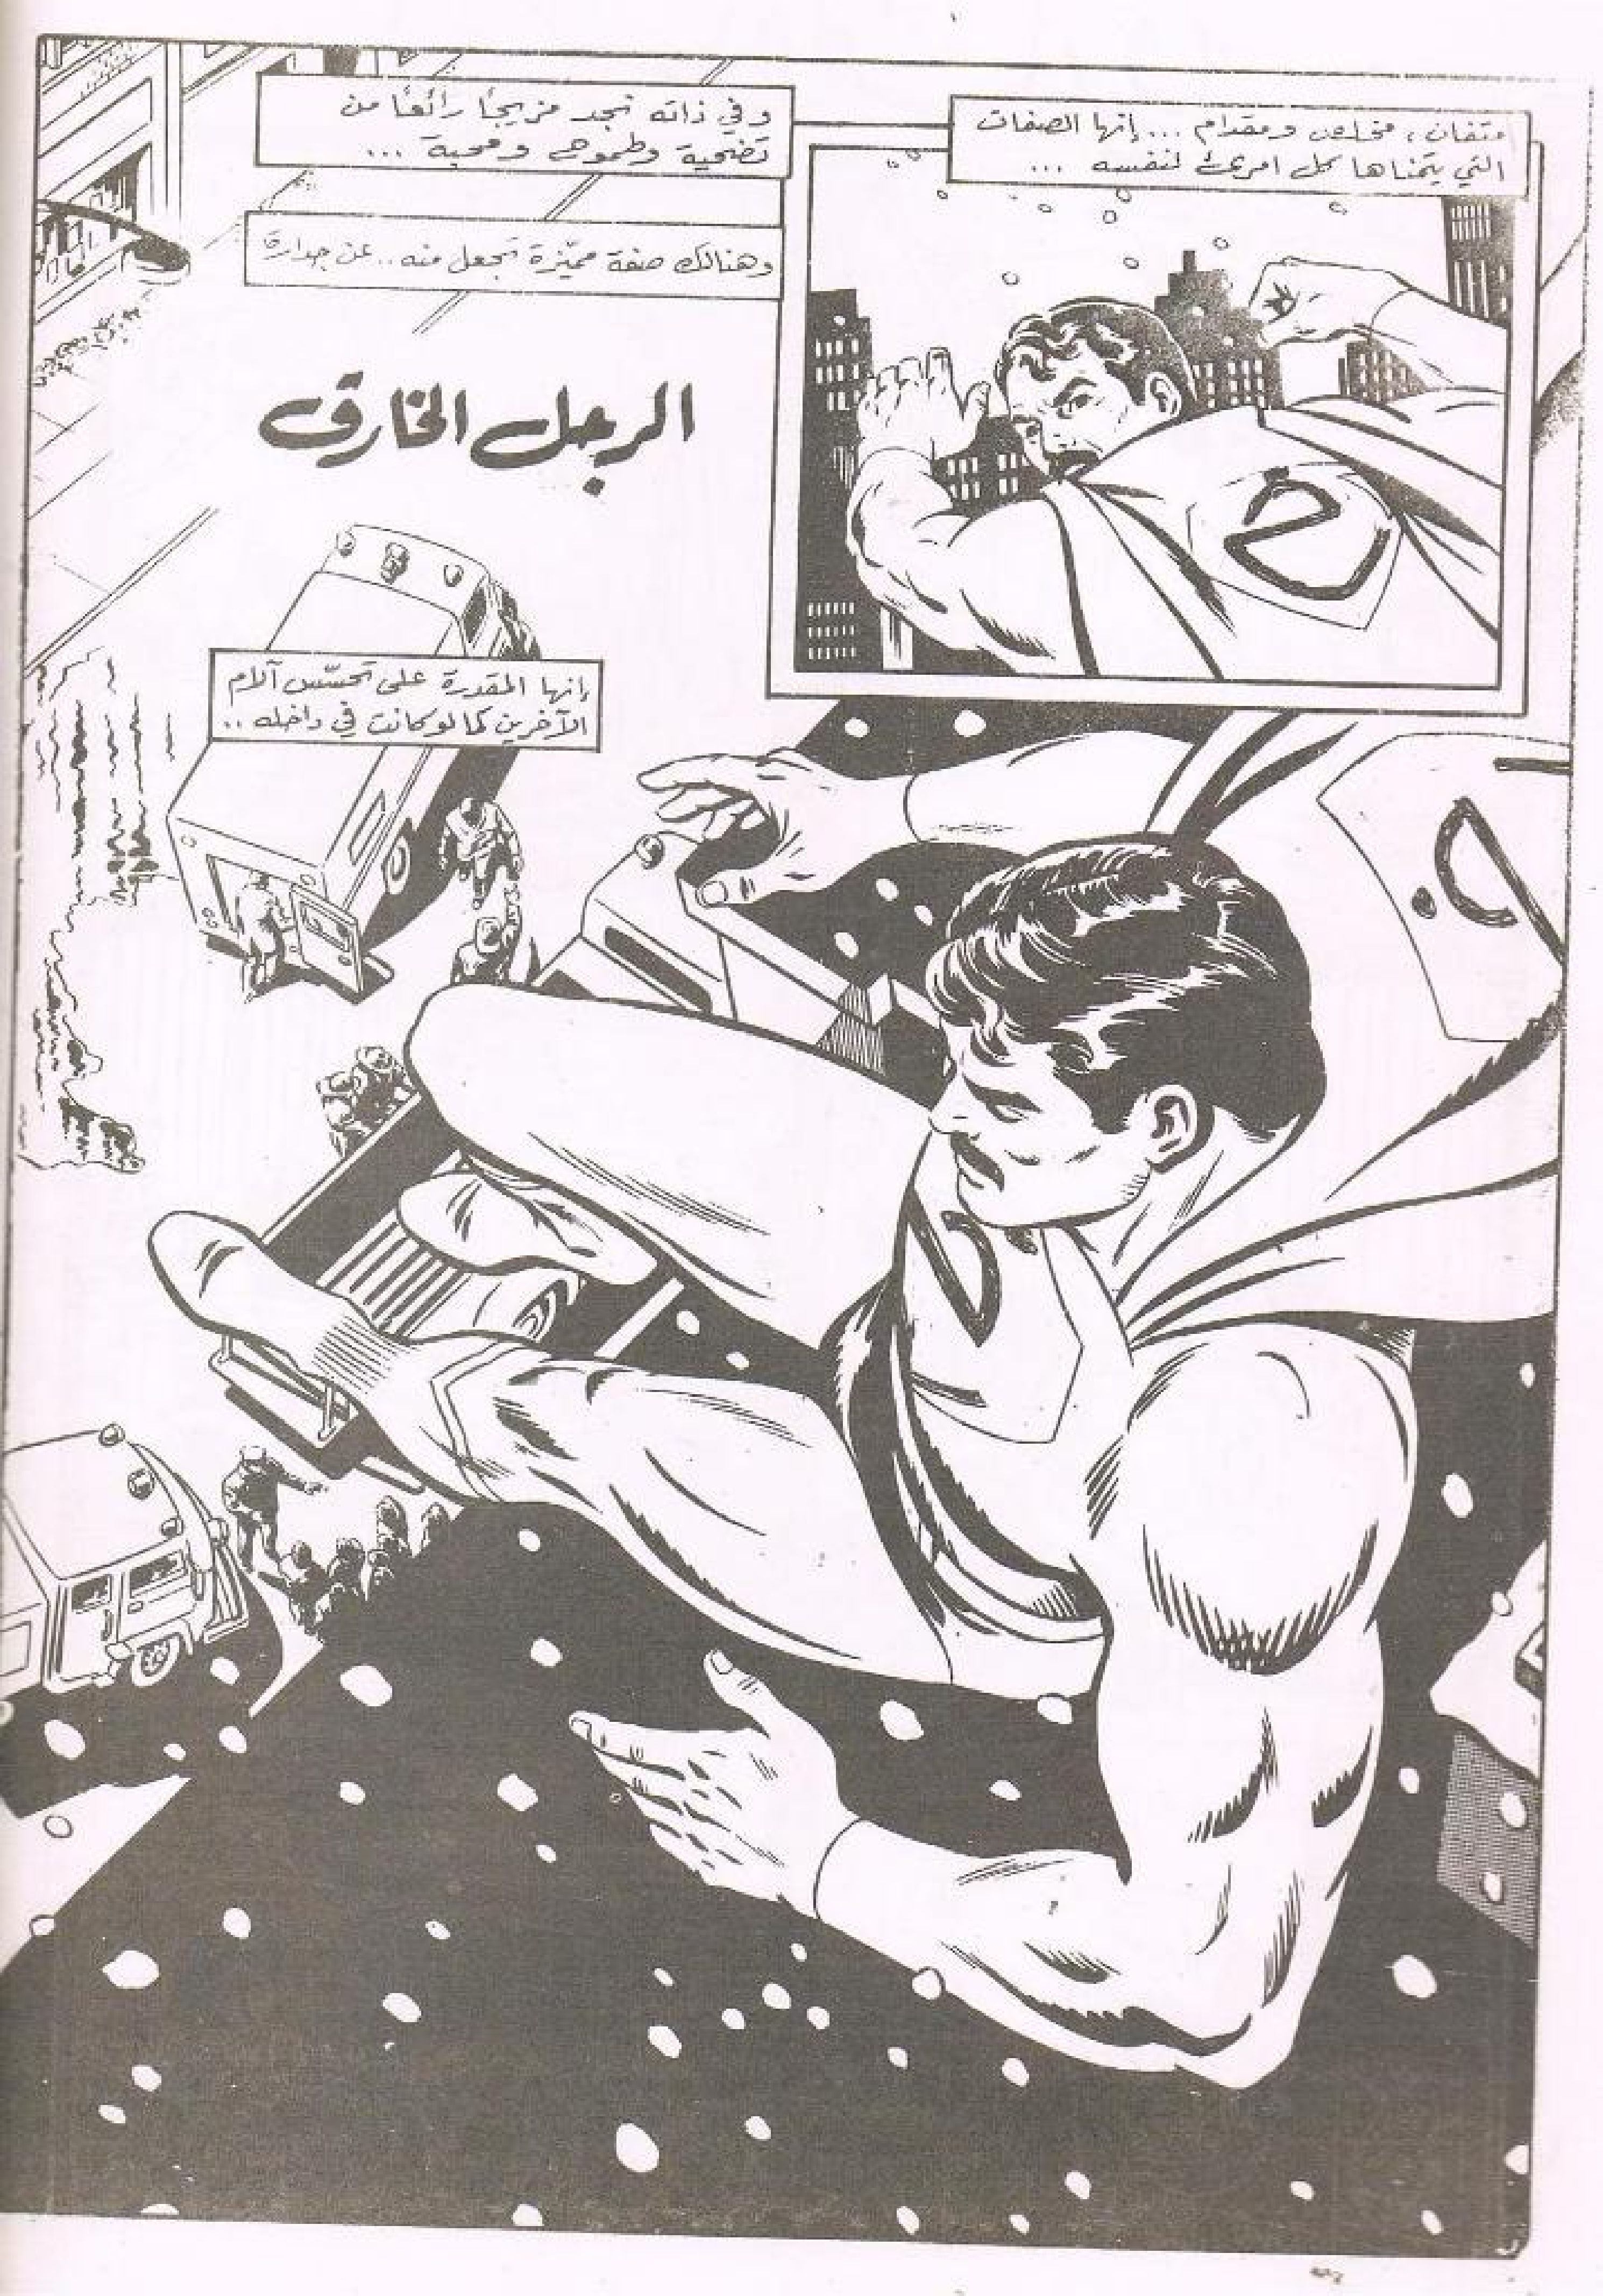 متفان، مخلص ومقدام ... إنها الصفات
التي يتمناها كل امرئ لنفسه ...
وفي ذاته تجد مزيجًا رائعًا من
تضحية وطموح ومحبة ...
وهنالك صفة مميّزة تجعل منه .. عن جدارة
الرجل الخارق
إنها المقدرة على تحسّس آلام
الآخرين كما لو كانت في داخله ..